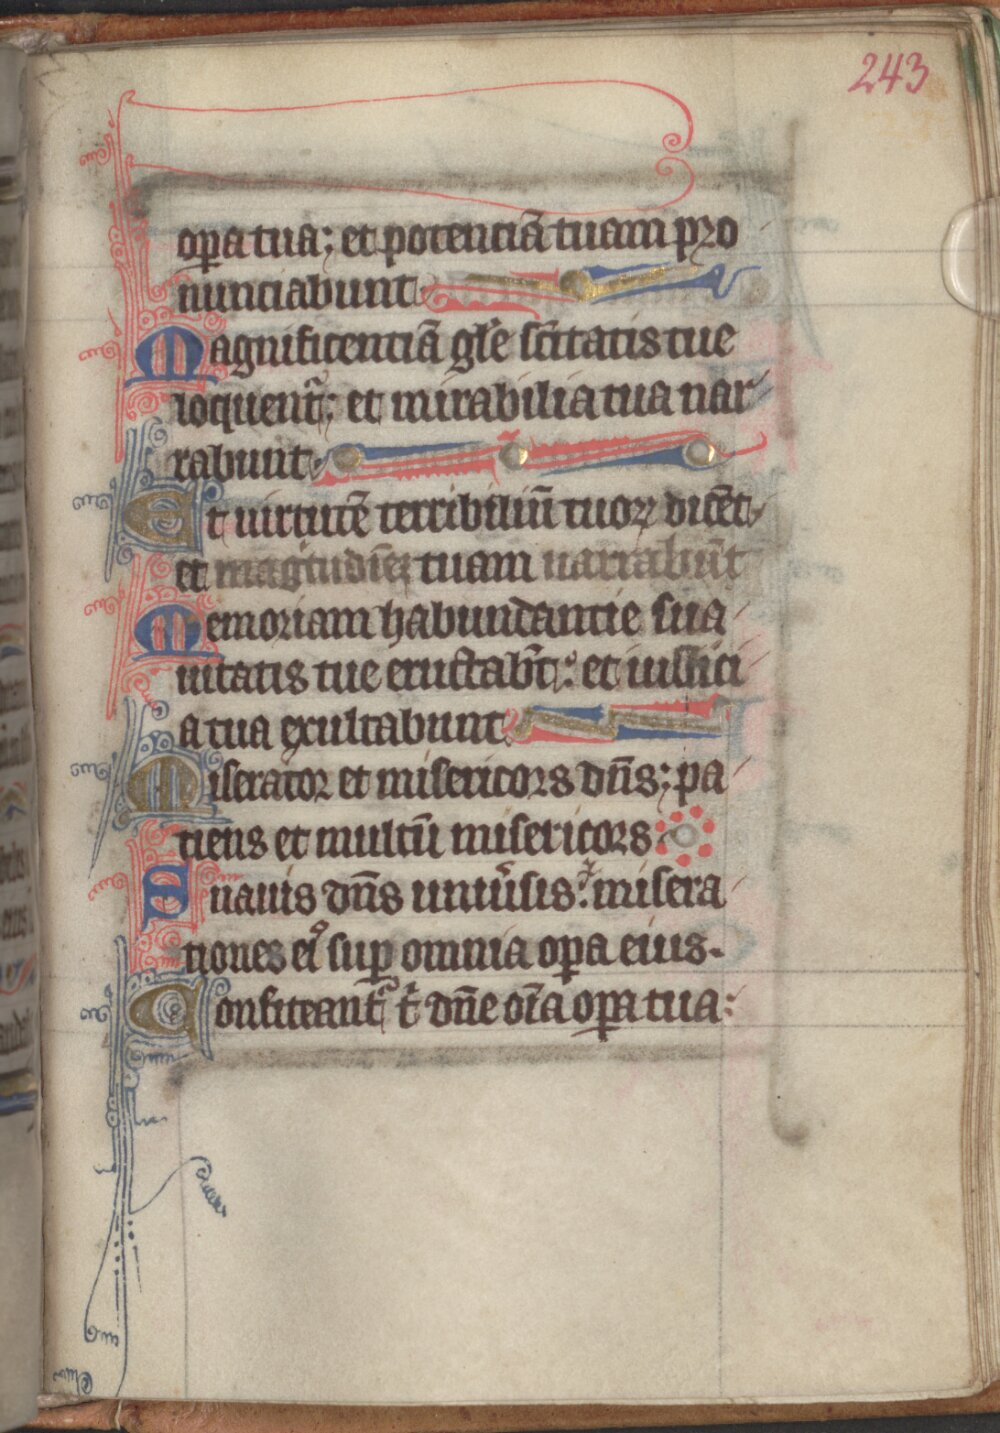 243
opa tua; et potenciā tuam pro
nunciabunt
Magnificentiā gl'e sc̄itatis tue
loquent᷑; et mirabilia tua nar
rabunt.
Et uirtutē terribiliū tuoꝝ dicēt
et tuam narrabūt
Memoriam habundantie sua
uitatis tue eructab̄t: et iustici
a tua exultabunt
Miserator et misericors dn̄s; pa
tiens et multū misericors
Suauis dn̄s uniu᷑sis: misera
tiones eiꝰ suꝑ omnia oꝑa eius.
Confiteant᷑ t̄ dn̄e oīa oꝑa tua: